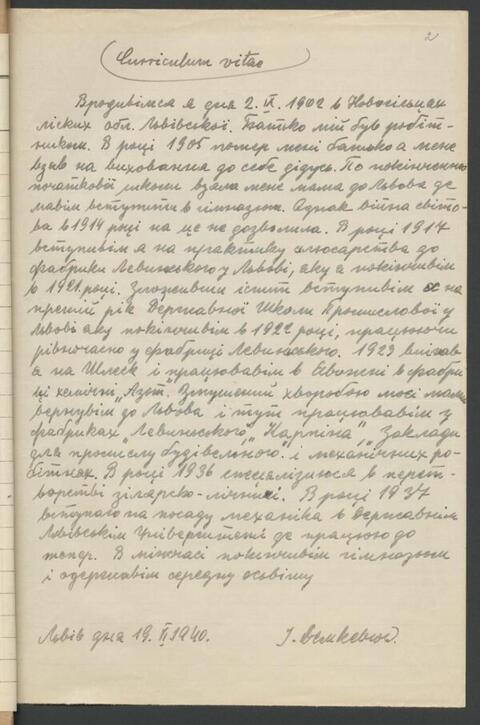 2
Curriculum vitae
Вродивімся я дня 2. II. 1902 в Новосільцах
ліских обл. Львівської. Батько мій був робіт-
ником. В році 1905 помер мені батько а мене
взяв на виховання до себе дідусь. По покінченню
початкової школи взяла мене мама до Львова де
мавім вступити в гімназию. Однак війна світо-
ва в 1914 році на це не дозволила. В році 1917
вступивім я на практику слюсарства до
фабрики Левинського у Львові, яку я покінчивім
в 1921. році. Зложивши іспит вступивім я на
третий рік Державної Школи Промислової у
Львові яку покінчивім в 1922 році, працюючи
рівночасно у фабриці Левинського. 1923 виіхав
я на Шлеск і працювавім в в фабри
ці хемічні „Азот". Змушений хворобою моєї мами
вернувім до Львова і тут працювавім у
фабриках „Левинського", „Карпіна", „Заклади
для промислу будівельного" і механічних ро-
бітнях. В році 1936 специялізуюся в
ворстві зілярско-лічниці. В році 1937
вступаю на посаду механіка в Державнім
Львівськім Університеті де працюю до
тепер. В міжчасі покінчивім гімназию
і одержавім середну освіту
Львів дня 19. II 1940. І. Демкевич.